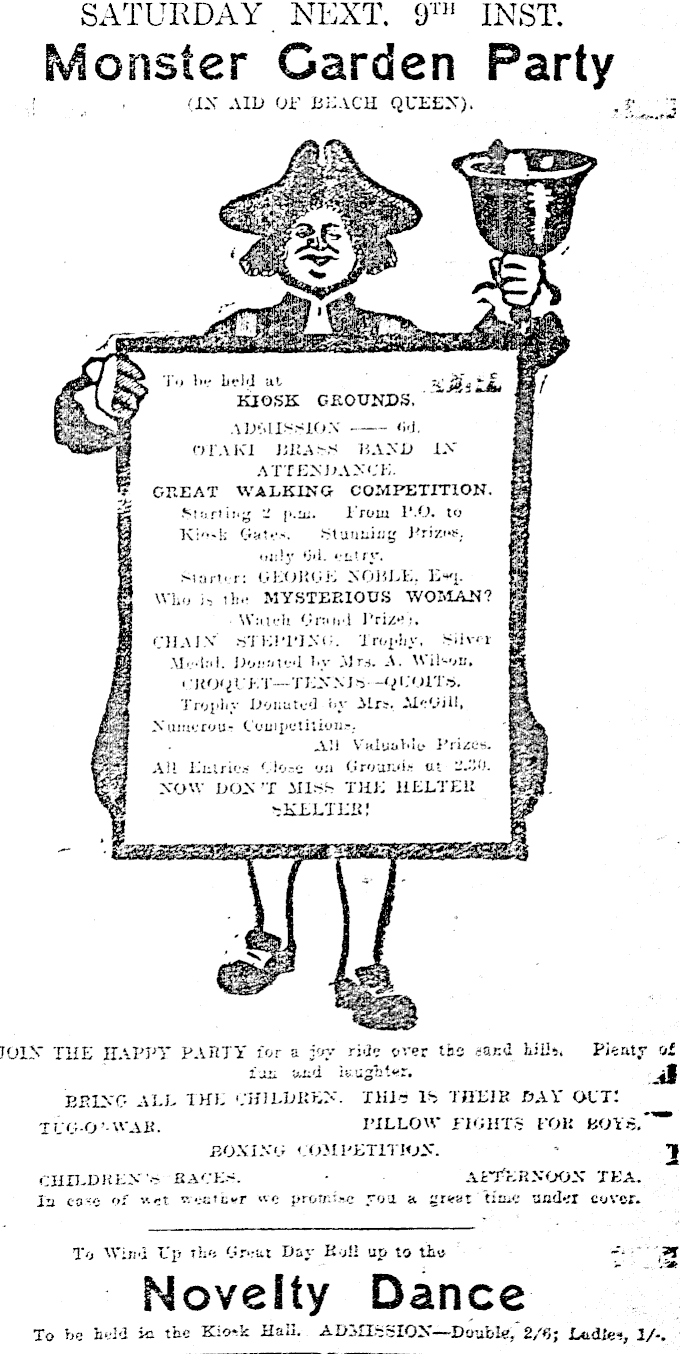 SATURDAY NEXT. 9TH INST.
Monster Garden Party
(IN AID OF BEACH QUEEN).
To be held at
KIOSK GROUNDS.
ADMISSION —— 6d.
OTAKI BRASS BAND IN
ATTENDANCE.
GREAT WALKING COMPETITION.
Starting 2 p.m. From P.O. to
Kiosk Gates. Stunning Prizes,
only 6d. entry.
Starter: GEORGE NOBLE, Esq.
Who is the MYSTERIOUS WOMAN?
(Watch Grand Prize).
CHAIN STEPPING. Trophy, Silver
Medal, Donated by Mrs. A. Wilson.
CROQUET—TENNIS—QUOITS.
Trophy Donated by Mrs. McGill,
Numerous Competitions,
All Valuable Prizes.
All Entries Close on Grounds at 2.30.
NOW DON'T MISS THE HELTER
SKELTER!
JOIN THE HAPPY PARTY for a joy ride over the sand hills. Plenty of
fun and laughter.
BRING ALL THE CHILDREN. THIS IS THEIR DAY OUT!
TUG-O'-WAR. PILLOW FIGHTS FOR BOYS.
BOXING COMPETITION.
CHILDREN'S RACES. AFTERNOON TEA.
In case of wet weather we promise you a great time under cover.
To Wind Up the Great Day Roll up to the
Novelty Dance
To be held in the Kiosk Hall. ADMISSION—Double, 2/6; Ladies, 1/-.